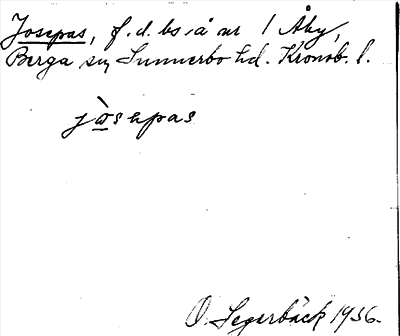 Josepas, f.d. bs. å nr 1 Åby,
Berga sn, Sunnerbo hd. Kronob. l.
jòsepas
O. Segerbäck 1936.